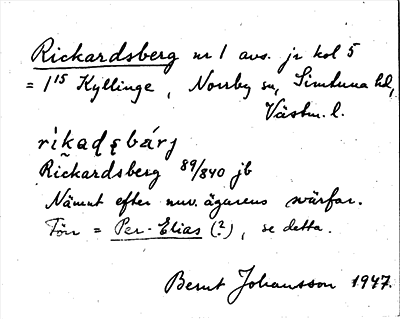 Rickardsberg nr 1 avs. jr kol 5
= 1¹⁵ Kyllinge, Norrby sn, Simtuna hd,
Västm. l.
rìkadsbárj
Rickardsberg 89/840 jb
Nämnt efter nuv. ägarens svärfar.
Förr = Per-Elias (?), se detta.
Bernt Johansson 1947.